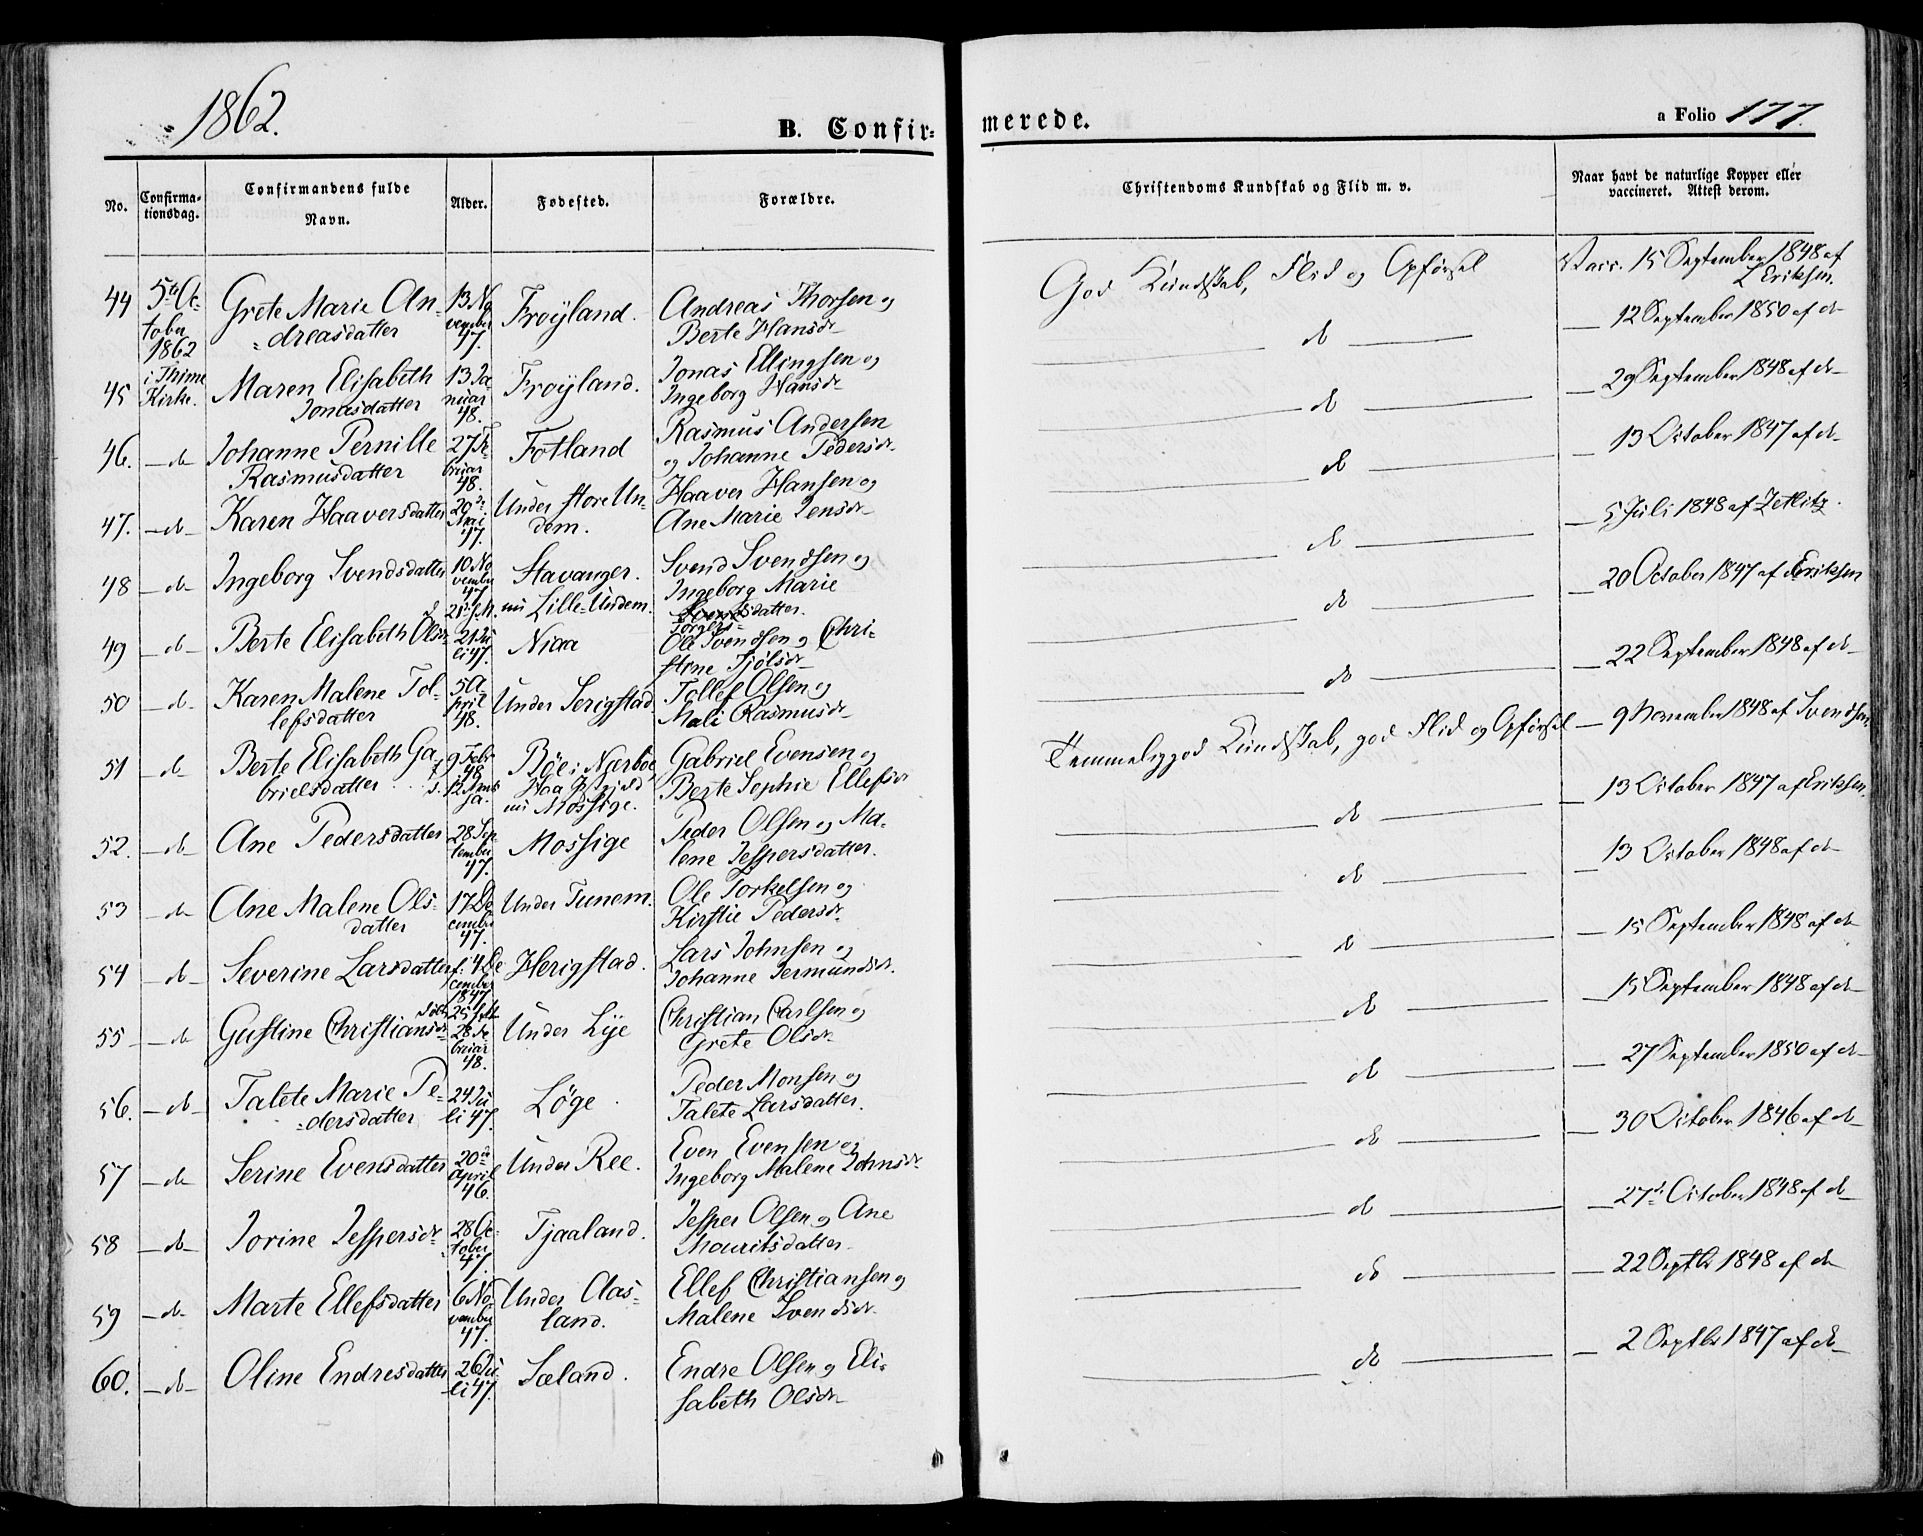 1862.
B. Confirmerede.
a Folio 177.
No. | Confirmationsdag. | Confirmandens fulde Navn. | Alder. | Fødested. | Forældre. | Christendoms Kundskab og Flid m. v. | Naar havt de naturlige Kopper eller vaccineret. Attest derom.
44 | 5te October 1862 i Thime Kirke. | Grete Marie Andreasdatter | 13 November 47. | Frøyland. | Andreas Thorsen og Berte Hansdr | God Kundskab, Flid og Opførsel | Vacc. 15 September 1848 af L Eriksen.
45 | Maren Elisabeth Jonasdatter | 13 Januar 48. | Frøyland. | Jonas Ellingsen og Ingeborg Hansdr | do | 12 September 1850 af do
46. | do | Johanne Pernille Rasmusdatter | 27 Februar 48. | Fotland | Rasmus Andersen og Johanne Pedersdr | do | 29 September 1848 af do
47. | do | Karen Haaversdatter | 29de Mai 47. | Under store Undem. | Haaver Hansen og Ane Marie Jensdr | do | 13 October 1847 af do
48 | do | Ingeborg Svendsdatter | 10 November 47 | Stavanger. nu Lille-Undem. | Svend Svendsen og Ingeborg Marie Torgersdatter. | do | 5 Juli 1848 af Zetlitz.
49 | do | Berte Elisabeth Olsdr | 21 Juli 47. | Niaa | Ole Svendsen og Christine Tjølsdr | do | 20 October 1847 af Eriksen
50 | do | Karen Malene Tollefsdatter | 5 April 48. | Under Serigstad | Tollef Olsen og Mali Rasmusdr | do | 22 September 1848 af do
51 | do | Berte Elisabeth Gabrielsdatter | 9 Febr 48 | Bøe i Nærbøe, Haa Pgjæld nu Mossige. | Gabriel Evensen og Berte Sophie Ellefsdr | Temmelig god Kundskab, god Flid og Opførsel | 9 November 1848 af Svendsen.
52. | do | Ane Pedersdatter | 28 September 47. | Mossige | Peder Olsen og Malene Jespersdatter. | do | 13 October 1847 af Eriksen.
53 | do | Ane Malene Olsdatter | 17 December 47. | Under Tunem. | Ole Torkelsen og Kirstie Pedersdr | do | 13 October 1848 af do
54 | do | Severine Larsdatter | f. 4 December 1847 | Herigstad. | Lars Johnsen og Johanne Germundsdr. | do | 15 September 1848 af do
55 | do | Gustine Christiansdr | 28 Februar 48. | Under Lye | Christian Carlsen og Grete Olsdr | do | 15 September 1848 af do
56. | do | Talete Marie Pedersdatter | 24 Juli 47. | Løge. | Peder Monsen og Talete Larsdatter. | do | 27 September 1850 af do
57 | do | Serine Evensdatter | 20de April 46. | Under Ree. | Even Evensen og Ingeborg Malene Johnsdr | do | 30 October 1846 af do
58 | do | Jorine Jespersdr | 28 October 47. | Tjaaland. | Jesper Olsen og Ane Mouritsdatter | do | 27de October 1848 af do
59 | do | Marte Ellefsdatter | 6 November 47. | Under Aasland. | Ellef Christiansen og Malene Svendsdr. | do | 22 Septbr 1848 af do
60. | do | Oline Endresdatter | 26 Juli 47. | Sæland. | Endre Olsen og Elisabeth Olsdr | do | 2 Septbr 1847 af do